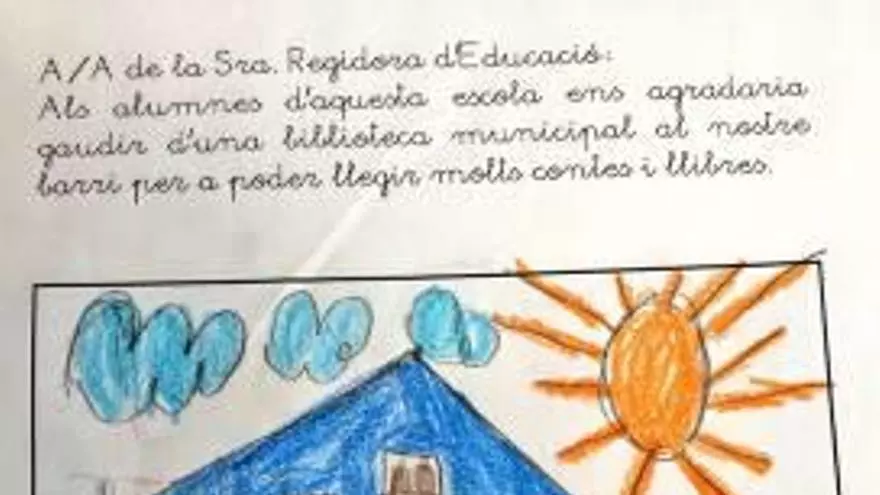 A/A de la Sra. Regidora d'Educació:
Als alumnes d'aquesta escola ens agradaria
gaudir d'una biblioteca municipal al nostre
barri per a poder llegir molts contes i llibres.